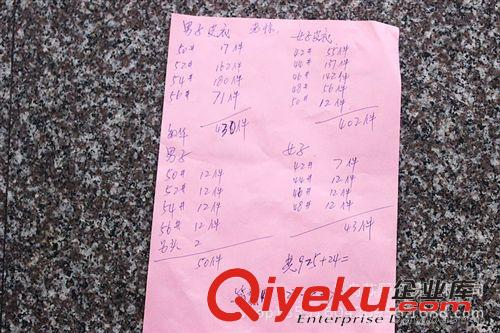 男子皮衣
50# 17件
52# 162件
54# 180件
56# 71件
430件
女子皮衣
42# 55件
44# 137件
46# 142件
48# 56件
50# 12件
402件
男子
50# 12件
52# 12件
54# 12件
56# 12件
2
50件
女子
42# 7件
44# 12件
46# 12件
48# 12件
43件
共925+24=
Qiyeku.com 企业库
Enterprise